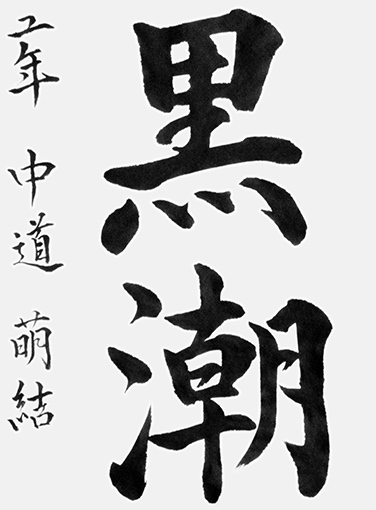 黒潮
二年 中道 萌結